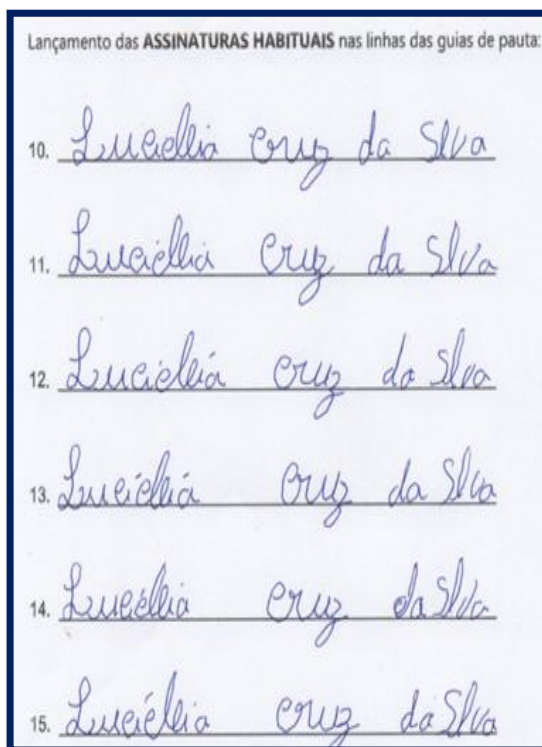 Lançamento das ASSINATURAS HABITUAIS nas linhas das guias de pauta:
10. Luciellia Cruz da Silva
11. Luciellia Cruz da Silva
12. Luciellia Cruz da Silva
13. Luciellia Cruz da Silva
14. Luciellia Cruz da Silva
15. Luciellia Cruz da Silva